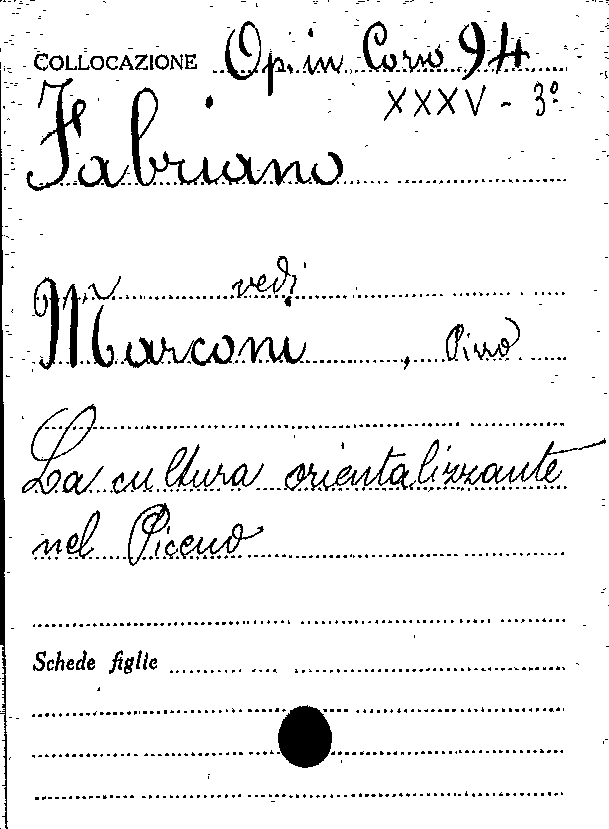 COLLOCAZIONE Op. in Corso 94
XXXV - 3º
Fabriano
vedi
Marconi, Pirro
La cultura orientalizzante
nel Piceno
Schede figlie